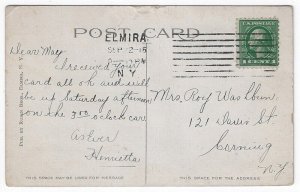 POST CARD
ELMIRA
SEP 2
N Y
U.S. POSTAGE
1 CENT 1
Dear May
I received your
card all ok and will
be up Saturday afternoon
on the 3 o'clock car.
as Ever
Henrietta
Mrs. Roy Washburn
121 Davis St
Corning
N.Y.
PUB. BY RUBIN BROS., ELMIRA, N. Y.
THIS SPACE MAY BE USED FOR MESSAGE
THIS SPACE FOR THE ADDRESS